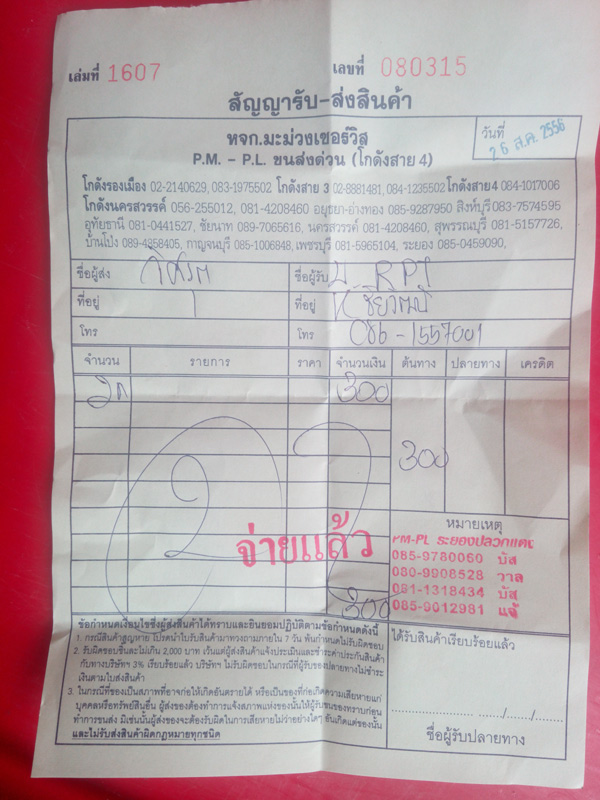 เล่มที่ 1607 เลขที่ 080315
สัญญารับ-ส่งสินค้า
หจก.มะม่วงเซอร์วิส
P.M. - P.L. ขนส่งด่วน (โกดังสาย 4)
วันที่
26 ส.ค. 2556
โกดังรองเมือง 02-2140629, 083-1975502 โกดังสาย 3 02-8881481, 084-1235502 โกดังสาย 4 084-1017006
โกดังนครสวรรค์ 056-255012, 081-4208460 อยุธยา-อ่างทอง 085-9287950 สิงห์บุรี 083-7574595
อุทัยธานี 081-0441527, ชัยนาท 089-7065616, นครสวรรค์ 081-4208460, สุพรรณบุรี 081-5157726,
บ้านโป่ง 089-4858405, กาญจนบุรี 085-1006848, เพชรบุรี 081-5965104, ระยอง 085-0459090,
ชื่อผู้ส่ง ชื่อผู้รับ บ. RPI
ที่อยู่ ที่อยู่
โทร โทร 086-1557001
จำนวน รายการ ราคา จำนวนเงิน ต้นทาง ปลายทาง เครดิต
300
300
จ่ายแล้ว
300
หมายเหตุ
PM-PL ระยองปลวกแดง
085-9780060 บัส
080-9908528 วาล
081-1318434 บัส
085-9012981 แจ้
ข้อกำหนดเงื่อนไขซึ่งผู้ส่งสินค้าได้ทราบและยินยอมปฏิบัติตามข้อกำหนดดังนี้
1. กรณีสินค้าสูญหาย โปรดนำใบรับสินค้ามาทวงถามภายใน 7 วัน พ้นกำหนดไม่รับผิดชอบ
2. รับผิดชอบชิ้นละไม่เกิน 2,000 บาท เว้นแต่ผู้ส่งสินค้าแจ้งประเมินและชำระค่าประกันสินค้า
กับทางบริษัทฯ 3% เรียบร้อยแล้ว บริษัทฯ ไม่รับผิดชอบในกรณีที่ผู้รับของปลายทางไม่ชำระ
เงินตามใบส่งสินค้า
3. ในกรณีที่ของเป็นสภาพที่อาจก่อให้เกิดอันตรายได้ หรือเป็นของที่ก่อเกิดความเสียหายแก่
บุคคลหรือทรัพย์สินอื่น ผู้ส่งของต้องทำการแจ้งสภาพแห่งของนั้นให้ผู้รับขนของทราบก่อน
ทำการขนส่ง มิเช่นนั้นผู้ส่งของจะต้องรับผิดในการเสียหายไม่ว่าอย่างใดๆ อันเกิดแต่ของนั้น
และไม่รับส่งสินค้าผิดกฎหมายทุกชนิด
ได้รับสินค้าเรียบร้อยแล้ว
....../....../......
ชื่อผู้รับปลายทาง